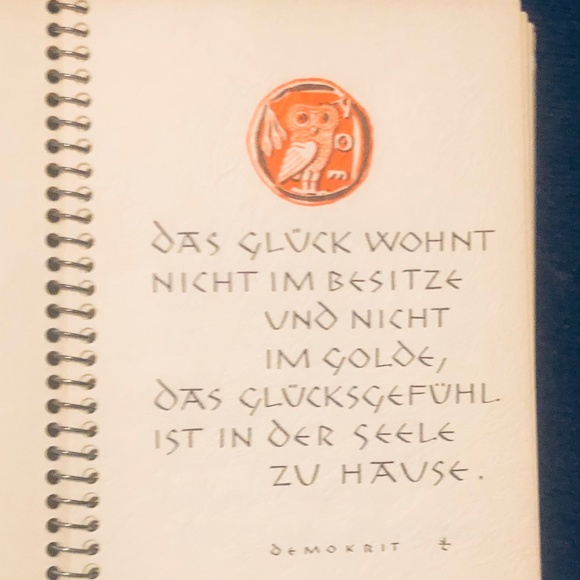 DAS GLÜCK WOHNT
NICHT IM BESITZE
UND NICHT
IM GOLDE,
DAS GLÜCKSGEFÜHL
IST IN DER SEELE
ZU HAUSE.
DEMOKRIT